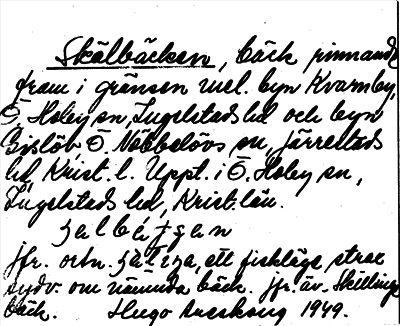 Skälbäcken, bäck rinnande
fram i gränsen mel. byn Kvarnby,
Ö. Hoby sn, Ingelstads hd och byn
Gislöv Ö. Nöbbelövs sn, Järrestads
hd, Krist. l. Uppt. i Ö. Hoby sn,
Ingelstads hd, Krist. län.
jfr. ortn. ett fiskläge strax
sydv. om nämnda bäck. jfr. äv. Skillinge
bäck. Hugo Areskoug 1949.